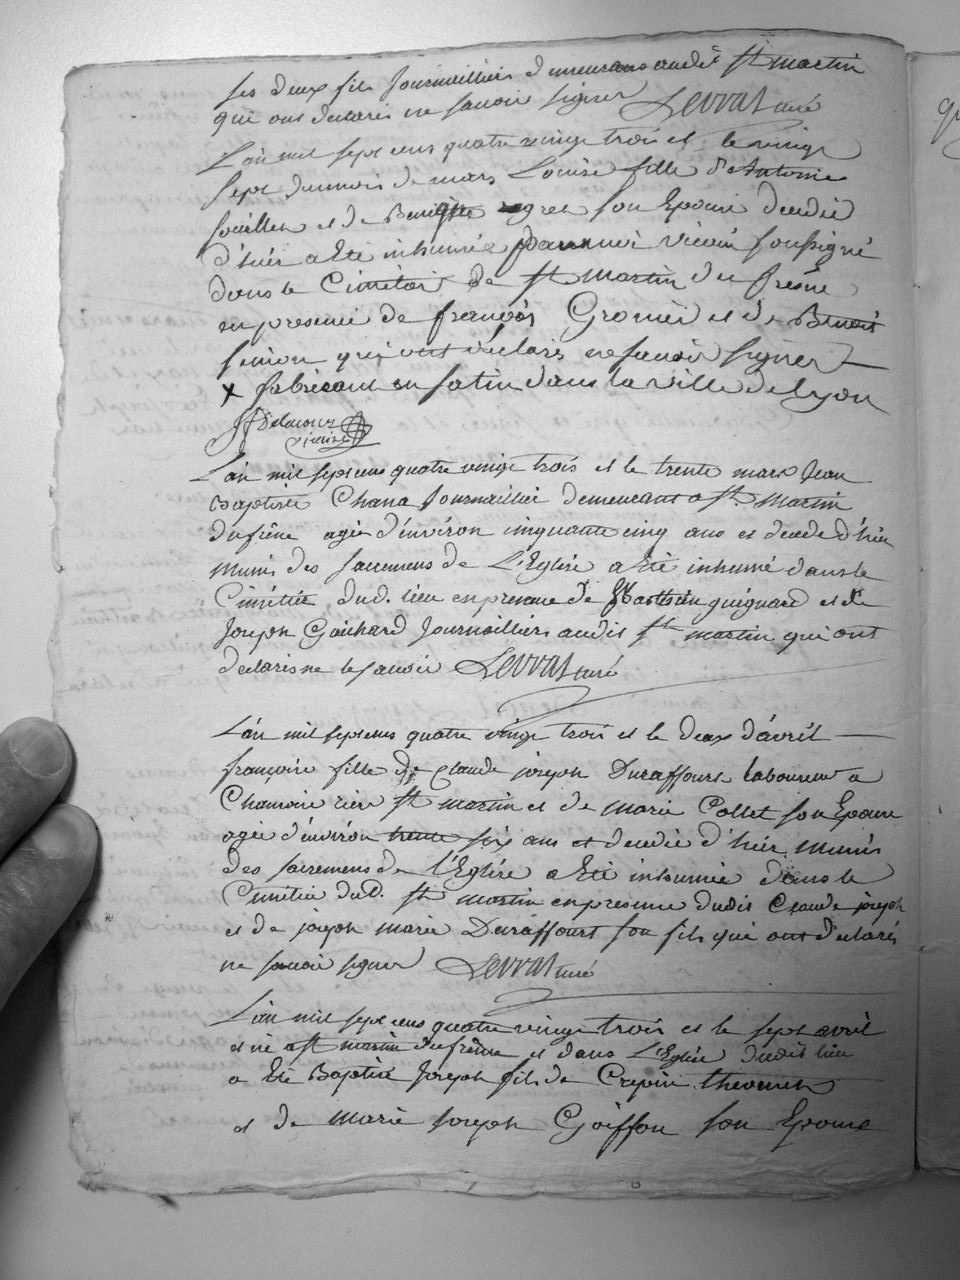 ses deux fils Journailliers demeurans audit St martin
qui ont declaré ne savoir signer Levrat curé
L'an mil sept cens quatre vingt trois et le vingt
sept du mois de mars Louise fille d'Antoine
et de son Epouse decedée
d'hier a Eté inhumée par moi vicaire soussigné
dans le Cimétiere de St martin du fresne
en presence de françois Gromier et de Benoit
qui ont déclarés ne savoir signer
x fabricant en satin dans la ville de lyon
Delacour
vicaire
L'an mil sept cens quatre vingt trois et le trente mars Jean
Baptiste Chana Journaillier demeurant a St. Martin
du frêne agé d'environ cinquante cinq ans et decedé d'hier
munis des sacremens de L'Eglise a Eté inhumé dans le
Cimétiére dud. lieu en presence de guignard et de
Joseph Gaichard Journailliers audit St martin qui ont
declarés ne le savoir Levrat curé
L'an mil sept cens quatre vingt trois et le deux d'avril
françoise fille de Claude joseph Duraffourt laboureur a
Chamoise riere St martin et de marie Collet son Epouse
agée d'environ trente six ans et decedée d'hier munis
des sacremens de l'Eglise a Eté inhumée dans le
Cimétiére dud. St martin en presence dudit Claude joseph
et de joseph marie Duraffourt son fils qui ont déclarés
ne savoir signer Levrat curé
L'an mil sept cens quatre vingt trois et le sept avril
est né a St martin du frêne et dans L'Eglise dudit lieu
a Eté Baptisé Joseph fils de Crepin thevenin
et de marie Joseph Goiffon son Epouse